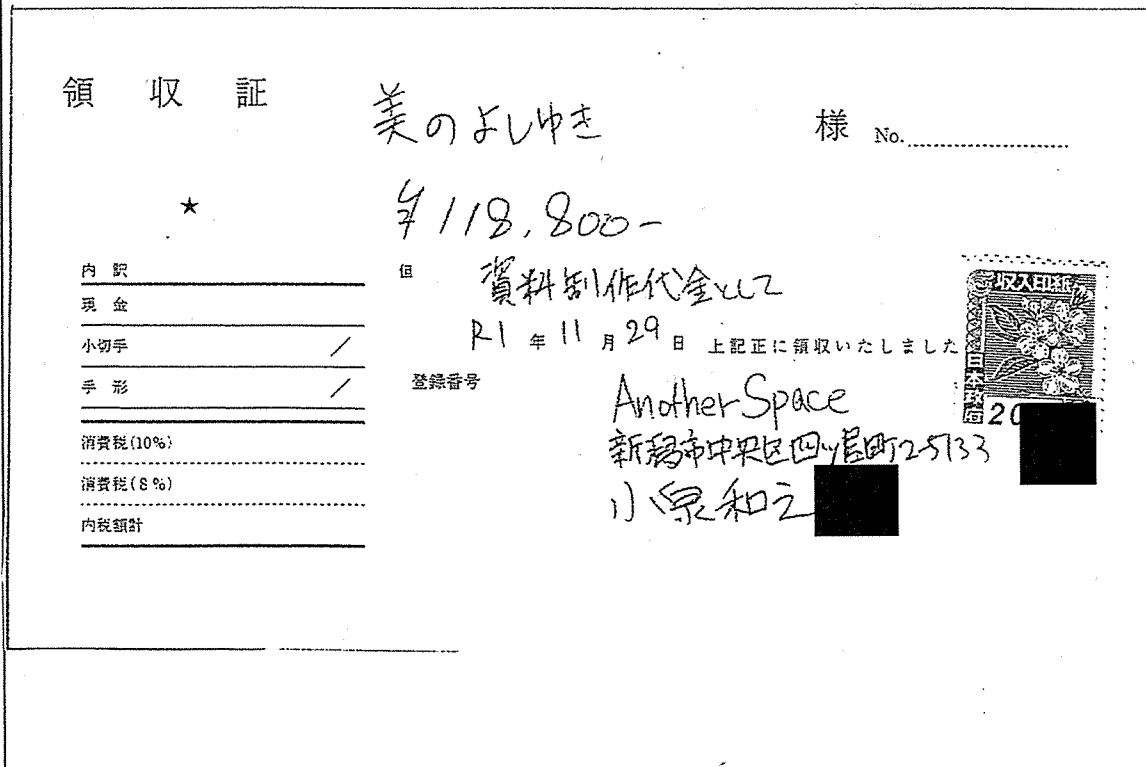 領 収 証
美のよしゆき 様 No.
★
¥118,800-
内 訳
現 金
小切手 /
手 形 /
消費税(10%)
消費税(8%)
内税額計
但 資料制作代金として
R1 年 11 月 29 日 上記正に領収いたしました
登録番号
Another Space
新潟市中央区四ツ屋町2-5133
小泉和之
収入印紙
日本政府
20